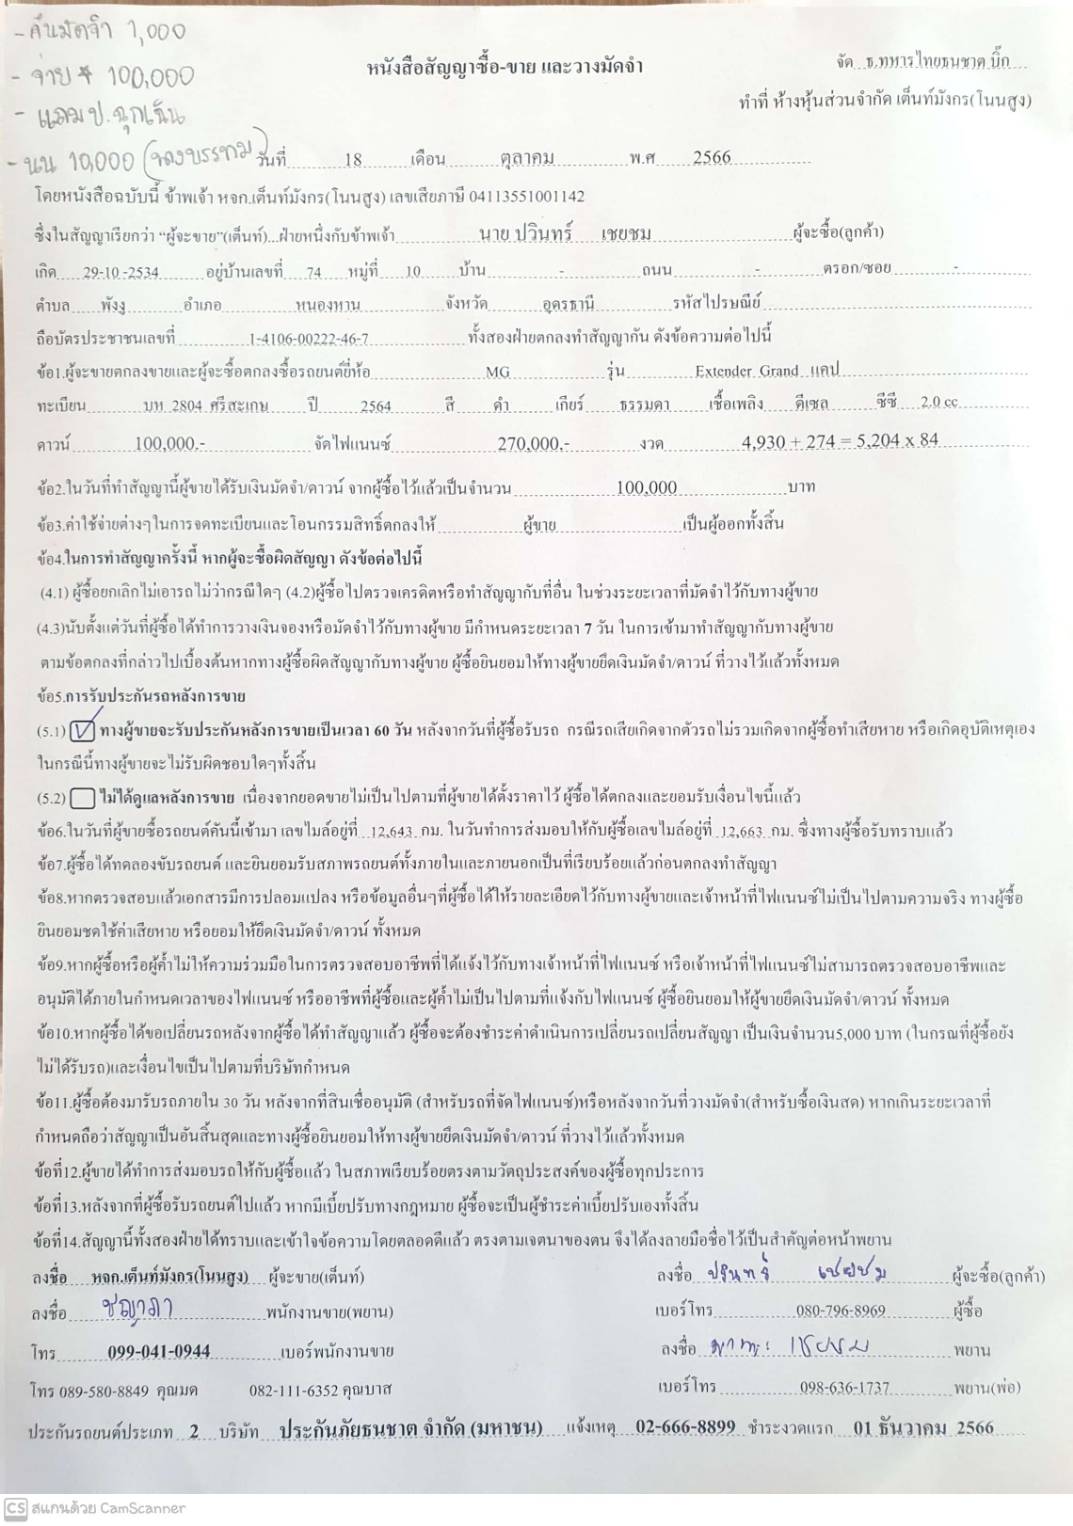 - คืนมัดจำ 1,000
- จ่าย 100,000
- แถม ป. ฉุกเฉิน
- นน 10,000
หนังสือสัญญาซื้อ-ขาย และวางมัดจำ
จัด ธ.ทหารไทยธนชาต บิ๊ก
ทำที่ ห้างหุ้นส่วนจำกัด เต็นท์มังกร(โนนสูง)
วันที่ 18 เดือน ตุลาคม พ.ศ 2566
โดยหนังสือฉบับนี้ ข้าพเจ้า หจก.เต็นท์มังกร(โนนสูง) เลขเสียภาษี 04113551001142
ซึ่งในสัญญาเรียกว่า “ผู้จะขาย”(เต็นท์)...ฝ่ายหนึ่งกับข้าพเจ้า นาย ปวินทร์ เชยชม ผู้จะซื้อ(ลูกค้า)
เกิด 29-10 -2534 อยู่บ้านเลขที่ 74 หมู่ที่ 10 บ้าน - ถนน - ตรอก/ซอย -
ตำบล พังงู อำเภอ หนองหาน จังหวัด อุดรธานี รหัสไปรษณีย์
ถือบัตรประชาชนเลขที่ 1-4106-00222-46-7 ทั้งสองฝ่ายตกลงทำสัญญากัน ดังข้อความต่อไปนี้
ข้อ1.ผู้จะขายตกลงขายและผู้จะซื้อตกลงซื้อรถยนต์ยี่ห้อ MG รุ่น Extender Grand แคป
ทะเบียน บท 2804 ศรีสะเกษ ปี 2564 สี ดำ เกียร์ ธรรมดา เชื้อเพลิง ดีเซล ซีซี 2.0 cc
ดาวน์ 100,000.- จัดไฟแนนซ์ 270,000.- งวด 4,930 + 274 = 5,204 x 84
ข้อ2.ในวันที่ทำสัญญานี้ผู้ขายได้รับเงินมัดจำ/ดาวน์ จากผู้ซื้อไว้แล้วเป็นจำนวน 100,000 บาท
ข้อ3.ค่าใช้จ่ายต่างๆในการจดทะเบียนและโอนกรรมสิทธิ์ตกลงให้ ผู้ขาย เป็นผู้ออกทั้งสิ้น
ข้อ4.ในการทำสัญญาครั้งนี้ หากผู้จะซื้อผิดสัญญา ดังข้อต่อไปนี้
(4.1) ผู้ซื้อยกเลิกไม่เอารถไม่ว่ากรณีใดๆ (4.2)ผู้ซื้อไปตรวจเครดิตหรือทำสัญญากับที่อื่น ในช่วงระยะเวลาที่มัดจำไว้กับทางผู้ขาย
(4.3)นับตั้งแต่วันที่ผู้ซื้อได้ทำการวางเงินจองหรือมัดจำไว้กับทางผู้ขาย มีกำหนดระยะเวลา 7 วัน ในการเข้ามาทำสัญญากับทางผู้ขาย
ตามข้อตกลงที่กล่าวไปเบื้องต้นหากทางผู้ซื้อผิดสัญญากับทางผู้ขาย ผู้ซื้อยินยอมให้ทางผู้ขายยึดเงินมัดจำ/ดาวน์ ที่วางไว้แล้วทั้งหมด
ข้อ5.การรับประกันรถหลังการขาย
(5.1) ทางผู้ขายจะรับประกันหลังการขายเป็นเวลา 60 วัน หลังจากวันที่ผู้ซื้อรับรถ กรณีรถเสียเกิดจากตัวรถไม่รวมเกิดจากผู้ซื้อทำเสียหาย หรือเกิดอุบัติเหตุเอง
ในกรณีนี้ทางผู้ขายจะไม่รับผิดชอบใดๆทั้งสิ้น
(5.2) ไม่ได้ดูแลหลังการขาย เนื่องจากยอดขายไม่เป็นไปตามที่ผู้ขายได้ตั้งราคาไว้ ผู้ซื้อได้ตกลงและยอมรับเงื่อนไขนี้แล้ว
ข้อ6.ในวันที่ผู้ขายซื้อรถยนต์คันนี้เข้ามา เลขไมล์อยู่ที่ 12,643 กม. ในวันทำการส่งมอบให้กับผู้ซื้อเลขไมล์อยู่ที่ 12,663 กม. ซึ่งทางผู้ซื้อรับทราบแล้ว
ข้อ7.ผู้ซื้อได้ทดลองขับรถยนต์ และยินยอมรับสภาพรถยนต์ทั้งภายในและภายนอกเป็นที่เรียบร้อยแล้วก่อนตกลงทำสัญญา
ข้อ8.หากตรวจสอบแล้วเอกสารมีการปลอมแปลง หรือข้อมูลอื่นๆที่ผู้ซื้อได้ให้รายละเอียดไว้กับทางผู้ขายและเจ้าหน้าที่ไฟแนนซ์ไม่เป็นไปตามความจริง ทางผู้ซื้อ
ยินยอมชดใช้ค่าเสียหาย หรือยอมให้ยึดเงินมัดจำ/ดาวน์ ทั้งหมด
ข้อ9.หากผู้ซื้อหรือผู้ค้ำไม่ให้ความร่วมมือในการตรวจสอบอาชีพที่ได้แจ้งไว้กับทางเจ้าหน้าที่ไฟแนนซ์ หรือเจ้าหน้าที่ไฟแนนซ์ไม่สามารถตรวจสอบอาชีพและ
อนุมัติได้ภายในกำหนดเวลาของไฟแนนซ์ หรืออาชีพที่ผู้ซื้อและผู้ค้ำไม่เป็นไปตามที่แจ้งกับไฟแนนซ์ ผู้ซื้อยินยอมให้ผู้ขายยึดเงินมัดจำ/ดาวน์ ทั้งหมด
ข้อ10.หากผู้ซื้อได้ขอเปลี่ยนรถหลังจากผู้ซื้อได้ทำสัญญาแล้ว ผู้ซื้อจะต้องชำระค่าดำเนินการเปลี่ยนรถเปลี่ยนสัญญา เป็นเงินจำนวน5,000 บาท (ในกรณที่ผู้ซื้อยัง
ไม่ได้รับรถ)และเงื่อนไขเป็นไปตามที่บริษัทกำหนด
ข้อ11.ผู้ซื้อต้องมารับรถภายใน 30 วัน หลังจากที่สินเชื่ออนุมัติ (สำหรับรถที่จัดไฟแนนซ์)หรือหลังจากวันที่วางมัดจำ(สำหรับซื้อเงินสด) หากเกินระยะเวลาที่
กำหนดถือว่าสัญญาเป็นอันสิ้นสุดและทางผู้ซื้อยินยอมให้ทางผู้ขายยึดเงินมัดจำ/ดาวน์ ที่วางไว้แล้วทั้งหมด
ข้อที่12.ผู้ขายได้ทำการส่งมอบรถให้กับผู้ซื้อแล้ว ในสภาพเรียบร้อยตรงตามวัตถุประสงค์ของผู้ซื้อทุกประการ
ข้อที่13.หลังจากที่ผู้ซื้อรับรถยนต์ไปแล้ว หากมีเบี้ยปรับทางกฎหมาย ผู้ซื้อจะเป็นผู้ชำระค่าเบี้ยปรับเองทั้งสิ้น
ข้อที่14.สัญญานี้ทั้งสองฝ่ายได้ทราบและเข้าใจข้อความโดยตลอดดีแล้ว ตรงตามเจตนาของตน จึงได้ลงลายมือชื่อไว้เป็นสำคัญต่อหน้าพยาน
ลงชื่อ หจก.เต็นท์มังกร(โนนสูง) ผู้จะขาย(เต็นท์) ลงชื่อ ปวินทร์ เชยชม ผู้จะซื้อ(ลูกค้า)
ลงชื่อ ชญาภา พนักงานขาย(พยาน) เบอร์โทร 080-796-8969 ผู้ซื้อ
โทร 099-041-0944 เบอร์พนักงานขาย ลงชื่อ เชยชม พยาน
โทร 089-580-8849 คุณมด 082-111-6352 คุณบาส เบอร์โทร 098-636-1737 พยาน(พ่อ)
ประกันรถยนต์ประเภท 2 บริษัท ประกันภัยธนชาต จำกัด (มหาชน) แจ้งเหตุ 02-666-8899 ชำระงวดแรก 01 ธันวาคม 2566
CS สแกนด้วย CamScanner